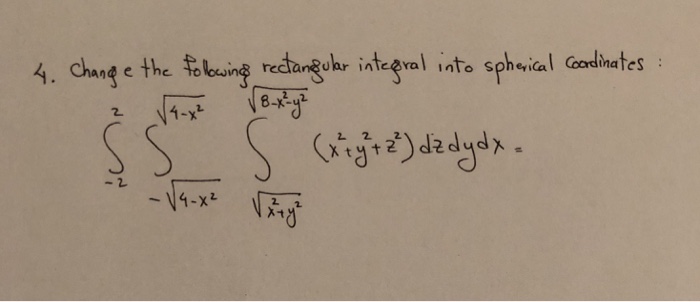 4. Change the following rectangular integral into spherical coordinates :
∫_{-2}^{2} ∫_{-√(4-x²)}^{√(4-x²)} ∫_{√(x²+y²)}^{√(8-x²-y²)} (x²+y²+z²) dz dy dx =